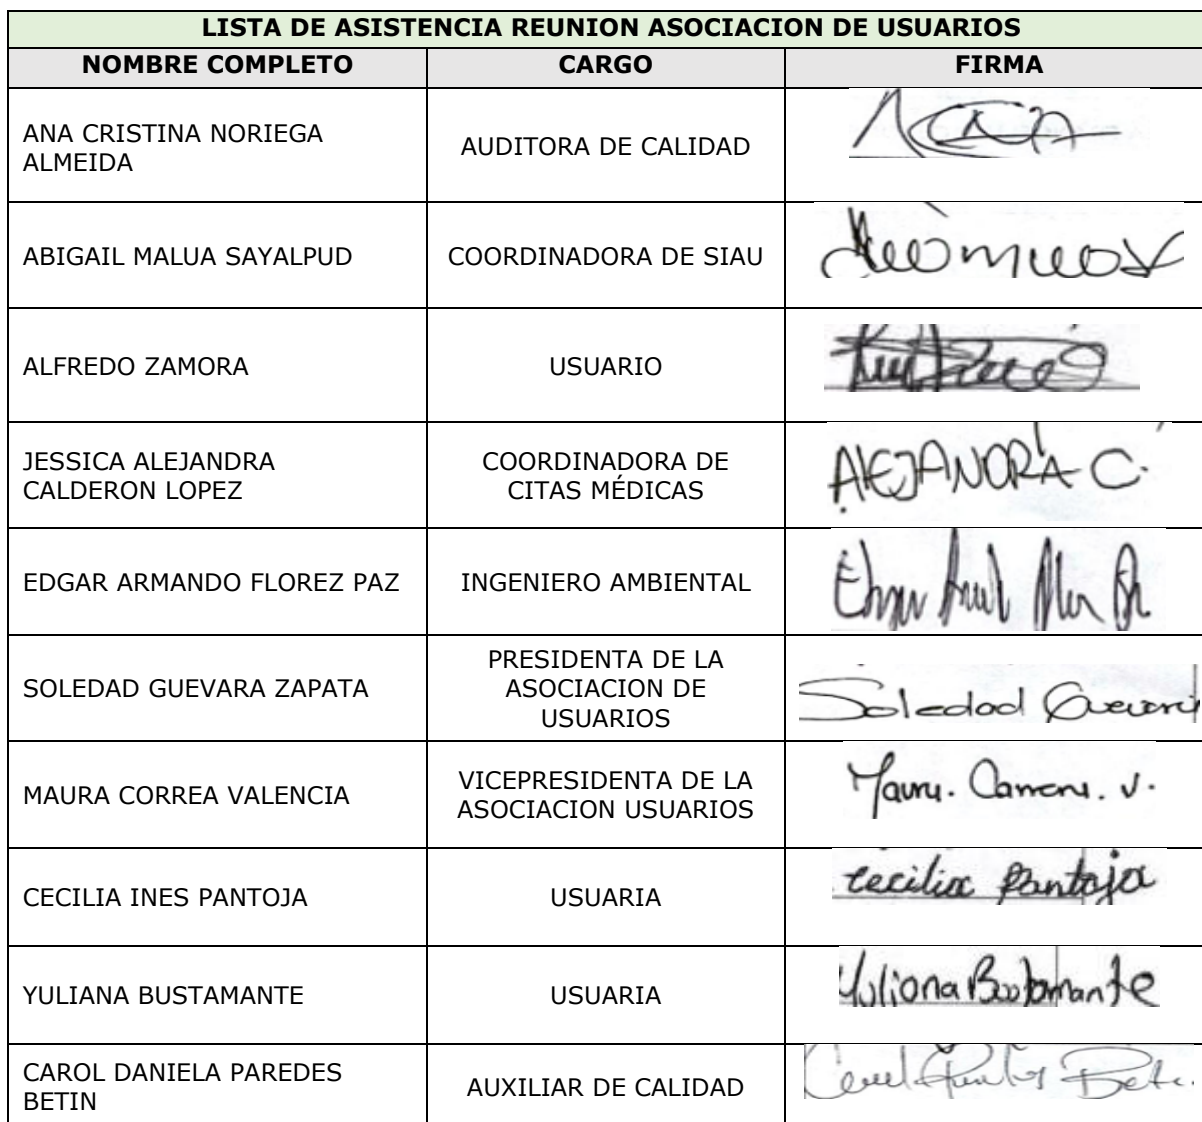 LISTA DE ASISTENCIA REUNION ASOCIACION DE USUARIOS
NOMBRE COMPLETO CARGO FIRMA
ANA CRISTINA NORIEGA
ALMEIDA
AUDITORA DE CALIDAD
ABIGAIL MALUA SAYALPUD COORDINADORA DE SIAU
ALFREDO ZAMORA USUARIO
JESSICA ALEJANDRA
CALDERON LOPEZ
COORDINADORA DE
CITAS MÉDICAS
ALEJANDRA C.
EDGAR ARMANDO FLOREZ PAZ INGENIERO AMBIENTAL
SOLEDAD GUEVARA ZAPATA
PRESIDENTA DE LA
ASOCIACION DE
USUARIOS
Soledad Guevara
MAURA CORREA VALENCIA
VICEPRESIDENTA DE LA
ASOCIACION USUARIOS
CECILIA INES PANTOJA USUARIA cecilia Pantoja
YULIANA BUSTAMANTE USUARIA Yuliana Bustamante
CAROL DANIELA PAREDES
BETIN
AUXILIAR DE CALIDAD